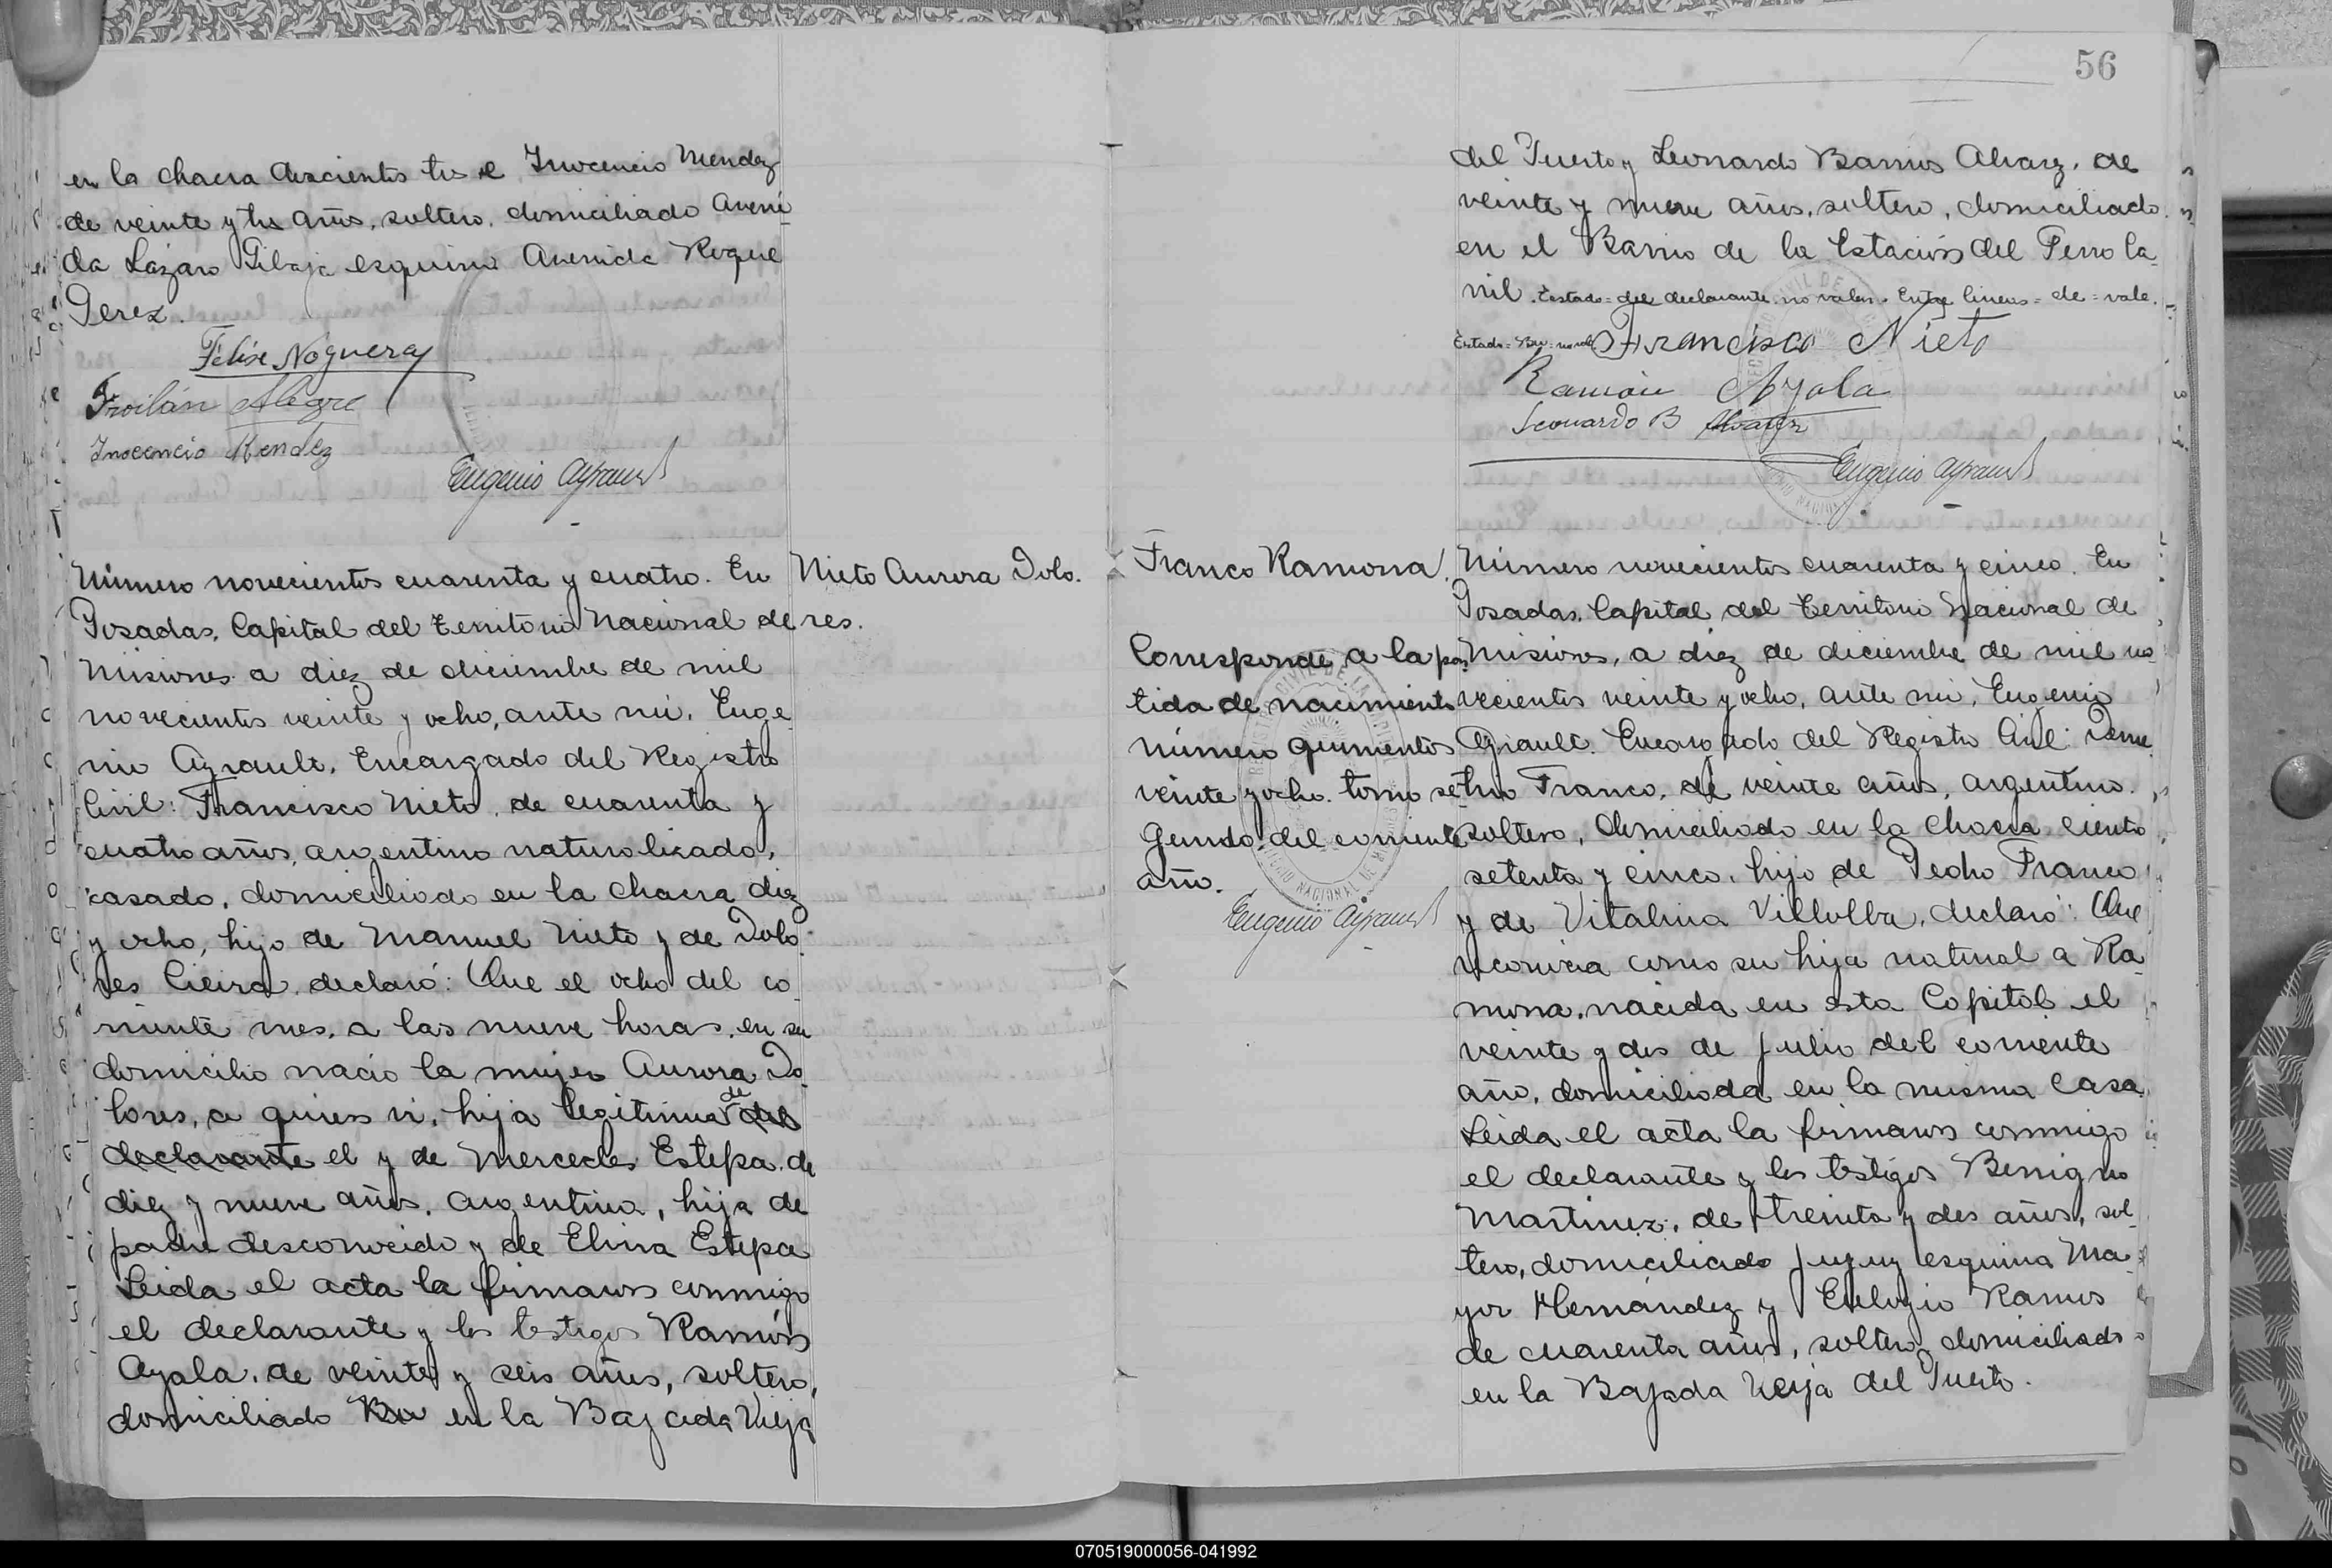 en la chacra doscientos tres e Inocencio Mendez
de veinte y tres años, soltero, domiciliado Aveni-
da Lázaro Gibaja esquina Avenida Roque
Perez.
Felix Noguera
Froilán Alegre
Inocencio Mendez
Eugenio Ayrault
Número novecientos cuarenta y cuatro. En
Posadas, Capital del Territorio Nacional de
Misiones a diez de diciembre de mil
novecientos veinte y ocho, ante mi, Euge-
nio Ayrault, Encargado del Registro
Civil: Francisco Nieto, de cuarenta y
cuatro años, argentino naturalizado,
casado, domiciliado en la chacra diez
y ocho, hijo de Manuel Nieto y de Dolo-
res Cieira, declaró: Que el ocho del co-
rriente mes, a las nueve horas, en su
domicilio nació la mujer Aurora Do-
lores, a quien vi, hija legitima de del
declarante el y de Mercedes Estepa, de
diez y nueve años, argentina, hija de
padre desconocido y de Elvira Estepa
Leida el acta la firmaron conmigo
el declarante y los testigos Ramón
Ayala, de veinte y seis años, soltero,
domiciliado Bu en la Bajada Vieja
Nieto Aurora Dolo-
res.
56
del Puerto y Leonardo Barrios Alvarez, de
veinte y nueve años, soltero, domiciliado
en el Barrio de la Estación del Ferro Ca-
rril. Testado= del declarante no valen. Entre lineas= de= vale.
Testado= Bu= no vale
Francisco Nieto
Ramón Ayala
Leonardo B Alvarez
Eugenio Ayrault
Franco Ramona.
Corresponde a la par-
tida de nacimiento
número quinientos
veinte y ocho. tomo se-
gundo, del corriente
año.
Eugenio Ayrault
Número novecientos cuarenta y cinco. En
Posadas, Capital del Territorio Nacional de
Misiones, a diez de diciembre de mil no-
vecientos veinte y ocho, ante mi, Eugenio
Ayrault. Encargado del Registro Civil: Deme-
trio Franco, de veinte años, argentino.
soltero, domiciliado en la chacra ciento
setenta y cinco, hijo de Pedro Franco
y de Vitalina Villalba, declaró: Que
reconocia como su hija natural a Ra-
mona, nacida en esta Capital el
veinte y dos de julio del corriente
año, domiciliada en la misma casa.
Leida el acta la firmaron conmigo
el declarante y los testigos Benigno
Martinez, de treinta y dos años, sol-
tero, domiciliado Jujuy esquina Ma-
yor Hernández y Eulogio Ramos
de cuarenta años, soltero, domiciliado
en la Bajada Vieja del Puerto.
070519000056-041992